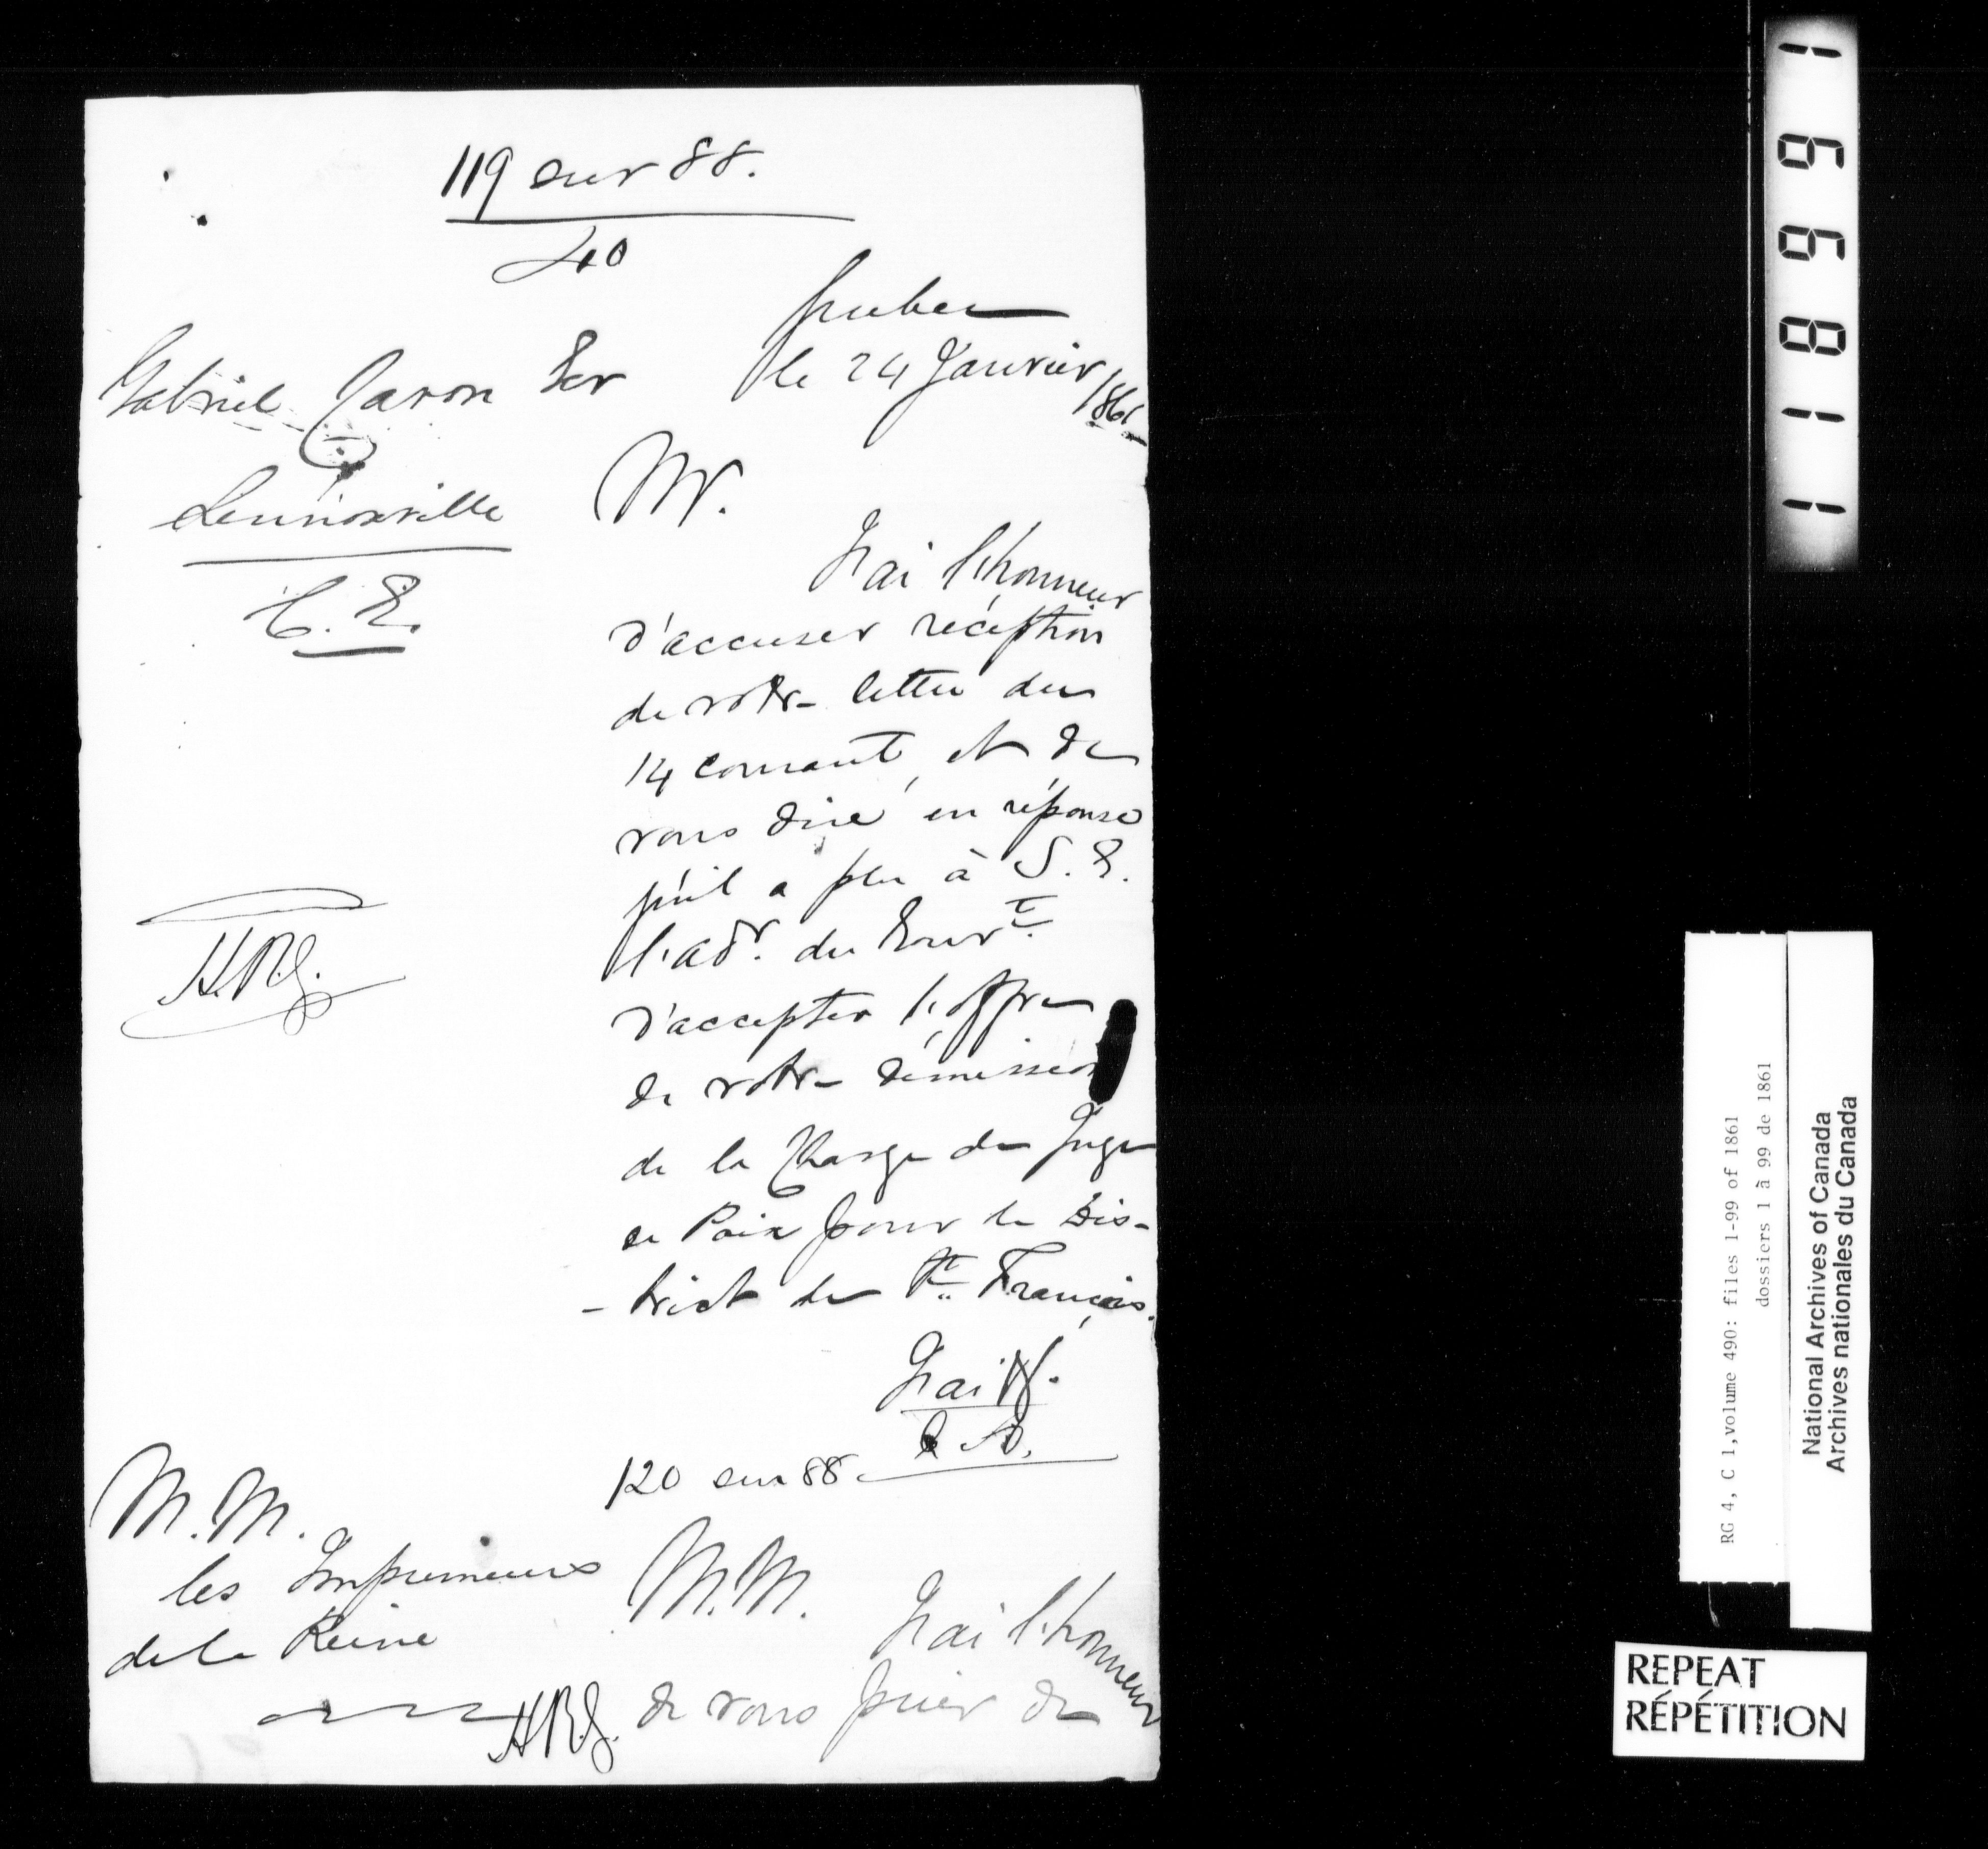 119 sur 88.
40
Quebec
le 24 Janvier 1861
Gabriel Caron Ecr
Lennoxville
C. E.
Mr.
J'ai l'honneur
d'accuser réception
de votre lettre du
14 courant, et de
vous dire en réponse
qu'il a plu à S. E.
l'adr. du Gouvt.
d'accepter l'offre
de votre démission
de la Charge de Juge
de Paix pour le Dis-
-trict de St. François.
H.R.G.
J'ai l'h.
120 sur 88
M.M.
les Imprimeurs
de la Reine
M.M.
J'ai l'honneur
de vous prier de
H.R.G.
119981
RG 4, C 1,volume 490: files 1-99 of 1861
dossiers 1 à 99 de 1861
National Archives of Canada
Archives nationales du Canada
REPEAT
RÉPÉTITION